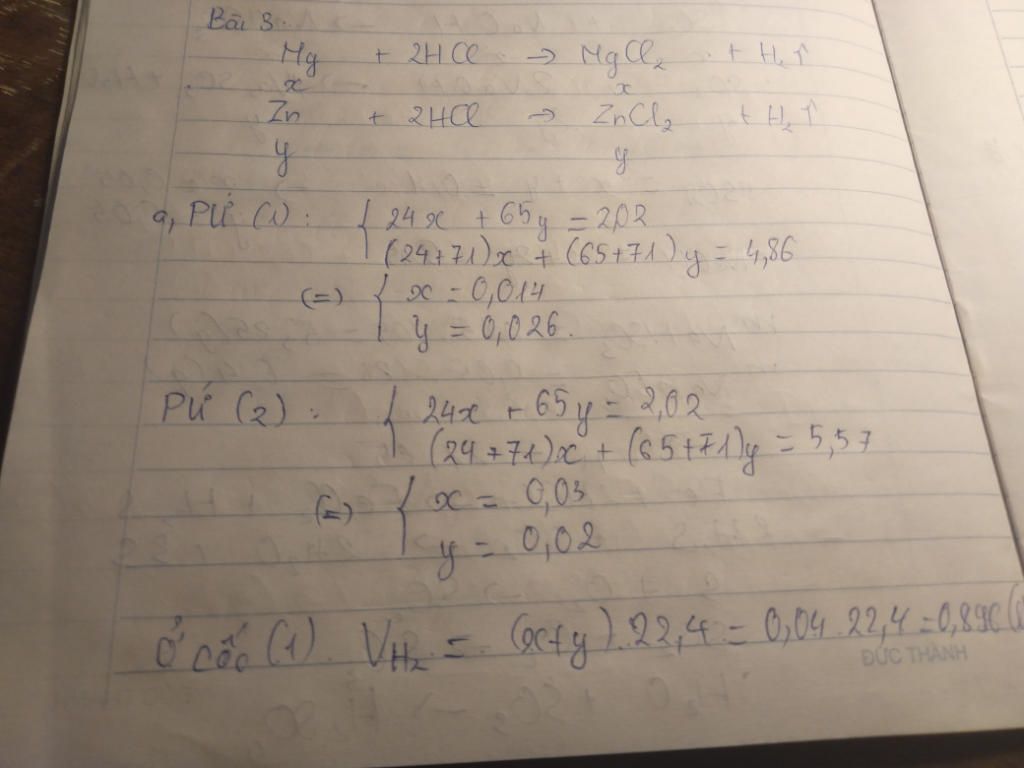 Bài 3:
Mg + 2HCl → MgCl₂ + H₂↑
x x
Zn + 2HCl → ZnCl₂ + H₂↑
y y
a, PƯ (1): { 24x + 65y = 2,02
(24+71)x + (65+71)y = 4,86
(=) { x = 0,014
y = 0,026.
PƯ (2): { 24x + 65y = 2,02
(24+71)x + (65+71)y = 5,57
(=) { x = 0,03
y = 0,02
Ở cốc (1) V H₂ = (x+y).22,4 = 0,04.22,4 = 0,896 (l
ĐỨC THÀNH